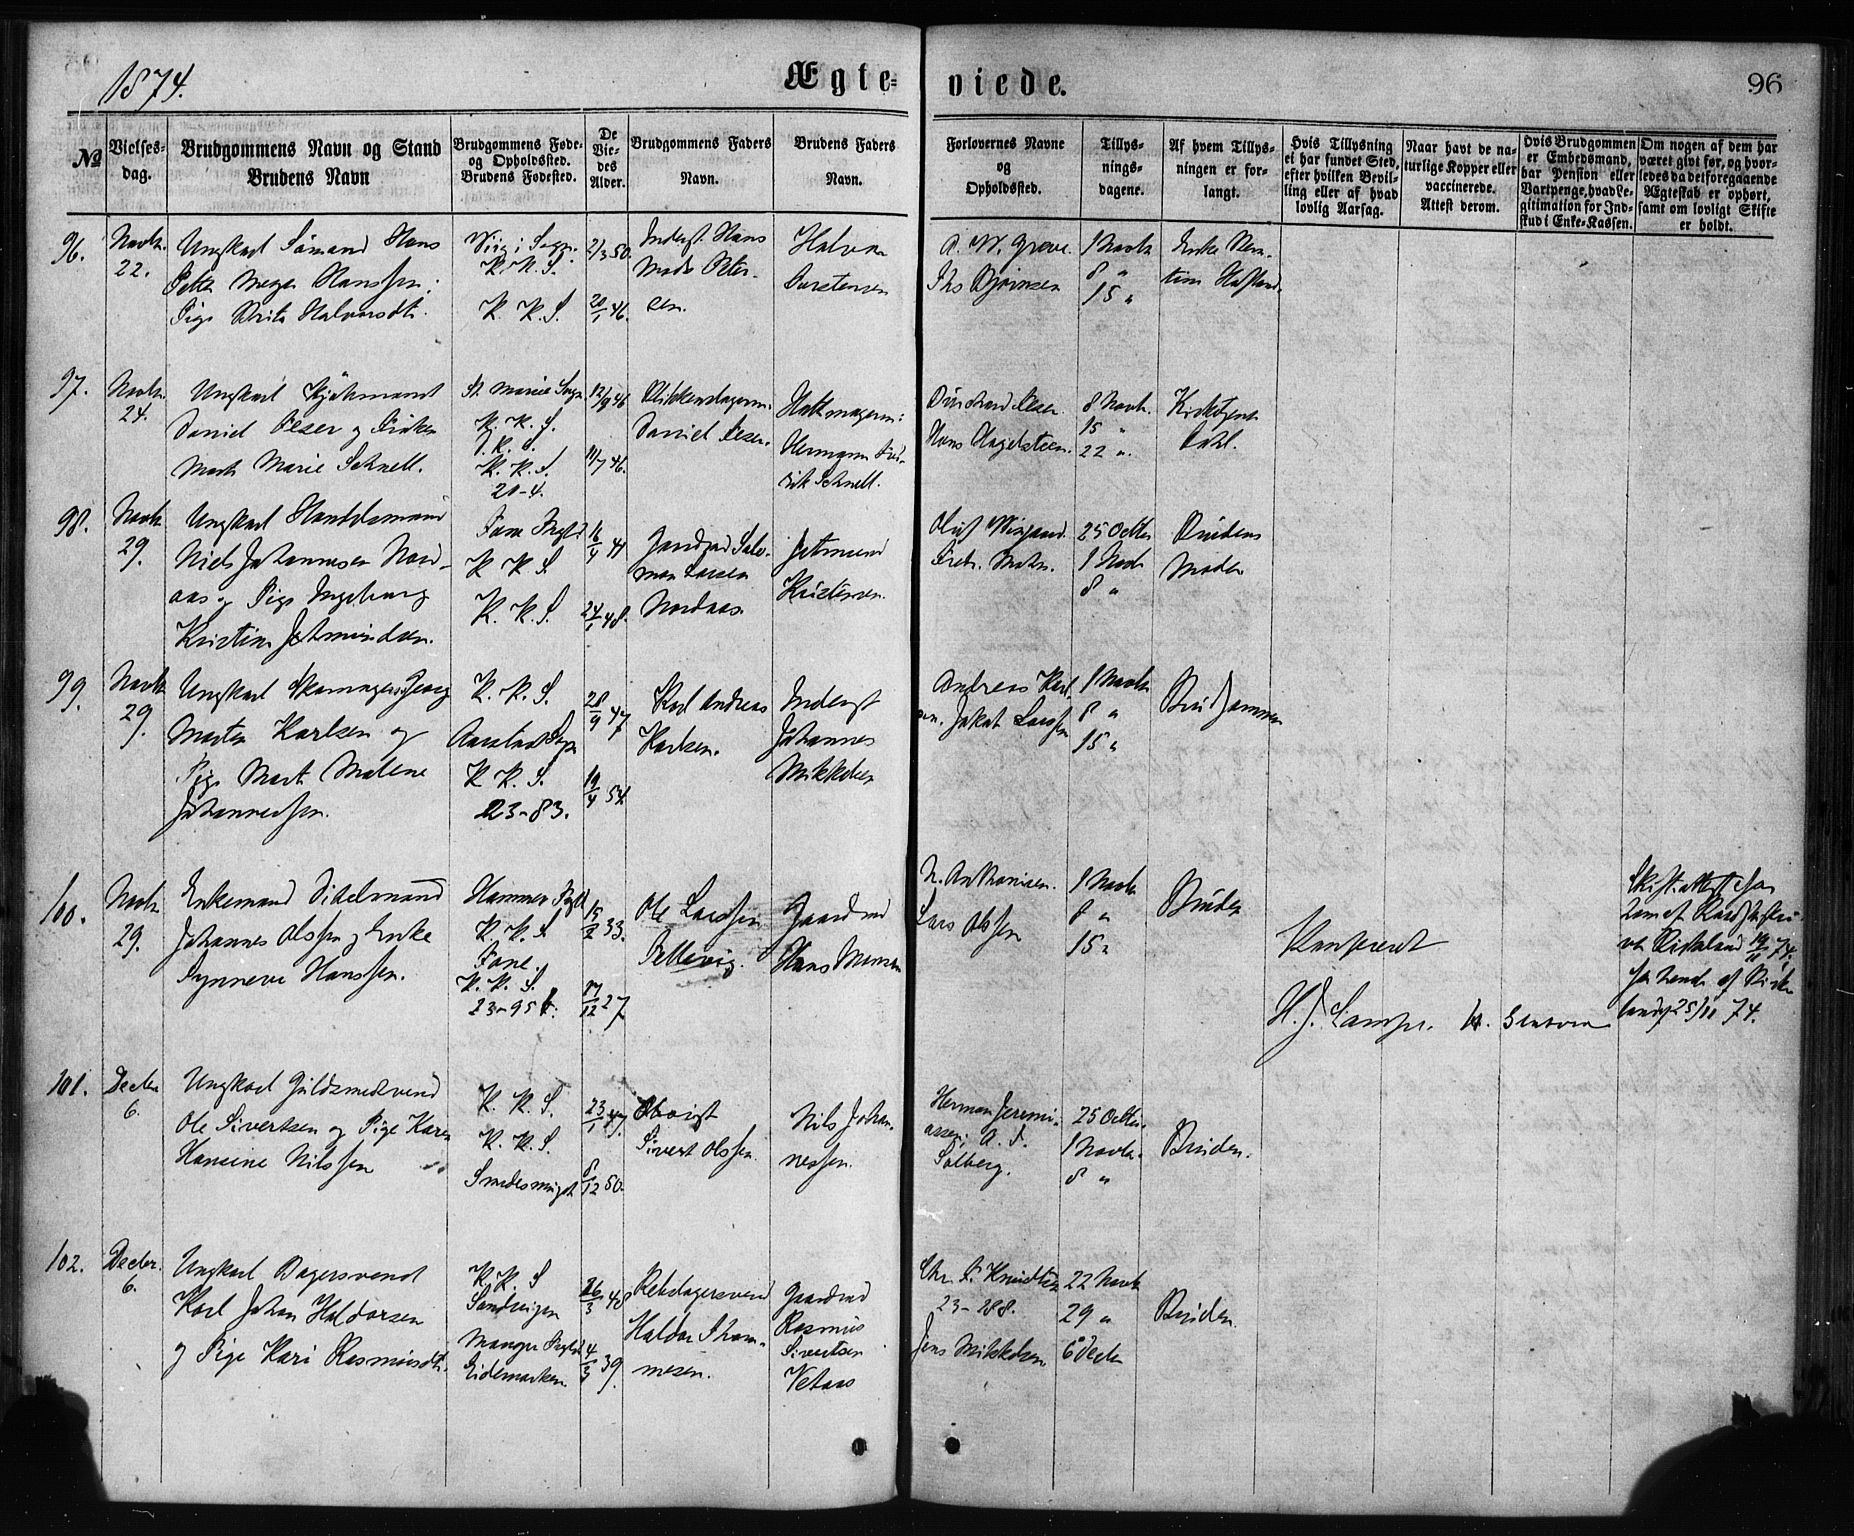 1874.
Ægte=
viede.
96
No
Vielses-
dag.
Brudgommens Navn og Stand
Brudens Navn
Brudgommens Føde-
og Opholdssted.
Brudens Fødested.
De
Vie-
des
Alder.
Brudgommens Faders
Navn.
Brudens Faders
Navn.
Forlovernes Navne
og
Opholdssted.
Tillys-
nings-
dagene.
Af hvem Tillys-
ningen er for-
langt.
Hvis Tillysning
ei har fundet Sted,
efter hvilken Bevil-
ling eller af hvad
lovlig Aarsag.
Naar havt de na-
turlige Kopper eller
vaccinerede.
Attest derom.
Hvis Brudgommen
er Embedsmand,
har Pension eller
Vartpenge, hvad Le-
gitimation for Ind-
skud i Enke-Kassen.
Om nogen af dem har
været givt før, og hvor-
ledes da det foregaaende
Ægteskab er ophørt,
samt om lovligt Skifte
er holdt.
96.
Novbr.
22.
Ungkarl Sømand Hans
Petter Meyer Hanssen;
Pige Brita Halvorsdtr.
K. K. S.
K. K. S.
2/3 50.
20/1 46.
Inderst Hans
Mads Peter-
sen.
Halvor
Torstensen
A. W. Greve.
Ths Bjørnsen
1 Novbr
8 "
15 "
Enke
97.
Novbr.
24.
Ungkarl
Daniel Peser og Pigen
Marie Schnell.
St. Marie Sogn
K. K. S.
K. K. S.
20-4.
12/9 46
11/7 46.
Daniel Peser.
Hattmagerm:
Hermann Fre-
rik Schnell.
Hans Hagelsteen.
8 Novbr.
15 "
22 "
Dahl.
98.
Novbr.
29.
Ungkarl Handelsmand
Niels Johannesen Nord-
aas og Pige Ingeborg
Kristine Jetmundsen.
Fane Prgld
K K S.
K. K. S.
16/4 41
24/1 48.
Gaardmd Salo-
mon Larsen
Nordaas
Jetmund
Kristensen
Oluf Wiigaard
Fredr. Mohn.
25 Octbr
1 Novb
8 "
Brudens
Moder
99.
Novbr
29.
Ungkarl Skomagersv. Georg
Martin Karlsen og
Pige Marte Malene
Johannessen.
K. K. S.
Aarstad Sogn
K K. S.
23-83.
28/9 47
19/4 54
Karl Andreas
Karlsen.
Inderst
Johannes
Mikkelsen
Andreas Karl-
sen. Jakob Larssen
1 Novbr
8 "
15 "
Brudgommen
100.
Novbr
29.
Enkemand
Johannes Olssen og Enke
Synneve Hanssen.
Hammer Prgld
K. K. S
Fane.
K. K. S.
23-95 b.
15/2 33.
17/12 27
Ole Larssen
Gaardmd
Hans Monsen
N. Anthonisen.
Lars Olssen
1 Novbr
8 "
15 "
Bruden
Konfereret
H. J. Lampe.
101.
Decbr
6.
Ungkarl Guldsmedsvend
Ole Sivertsen og Pige Karen
Hansine Nilssen
K. K. S.
K. K. S.
Smedesmuget
23/1 47.
8/12 50.
Sivert Olssen.
Nils Johan-
nessen.
Herman Jeremi-
assen, A. F.
Solberg.
25 Octbr.
1 Novbr.
8 "
Bruden.
102.
Decbr.
6.
Ungkarl Bagersvend
Karl Johan Haldorsen
og Pige Kari Rasmusdtr.
K K. S
Sandvigen
Manger Prgld
Eidemarken
26/3 48
4/3 39.
Rebslagersvend
Haldor Thom-
mesen.
Gaardmd
Rasmus
Sivertsen
Vetaas
Chr. F. Knudtsen
23-288.
Jens Mikkelsen
22 Novb
29 "
6 Decbr
Bruden.